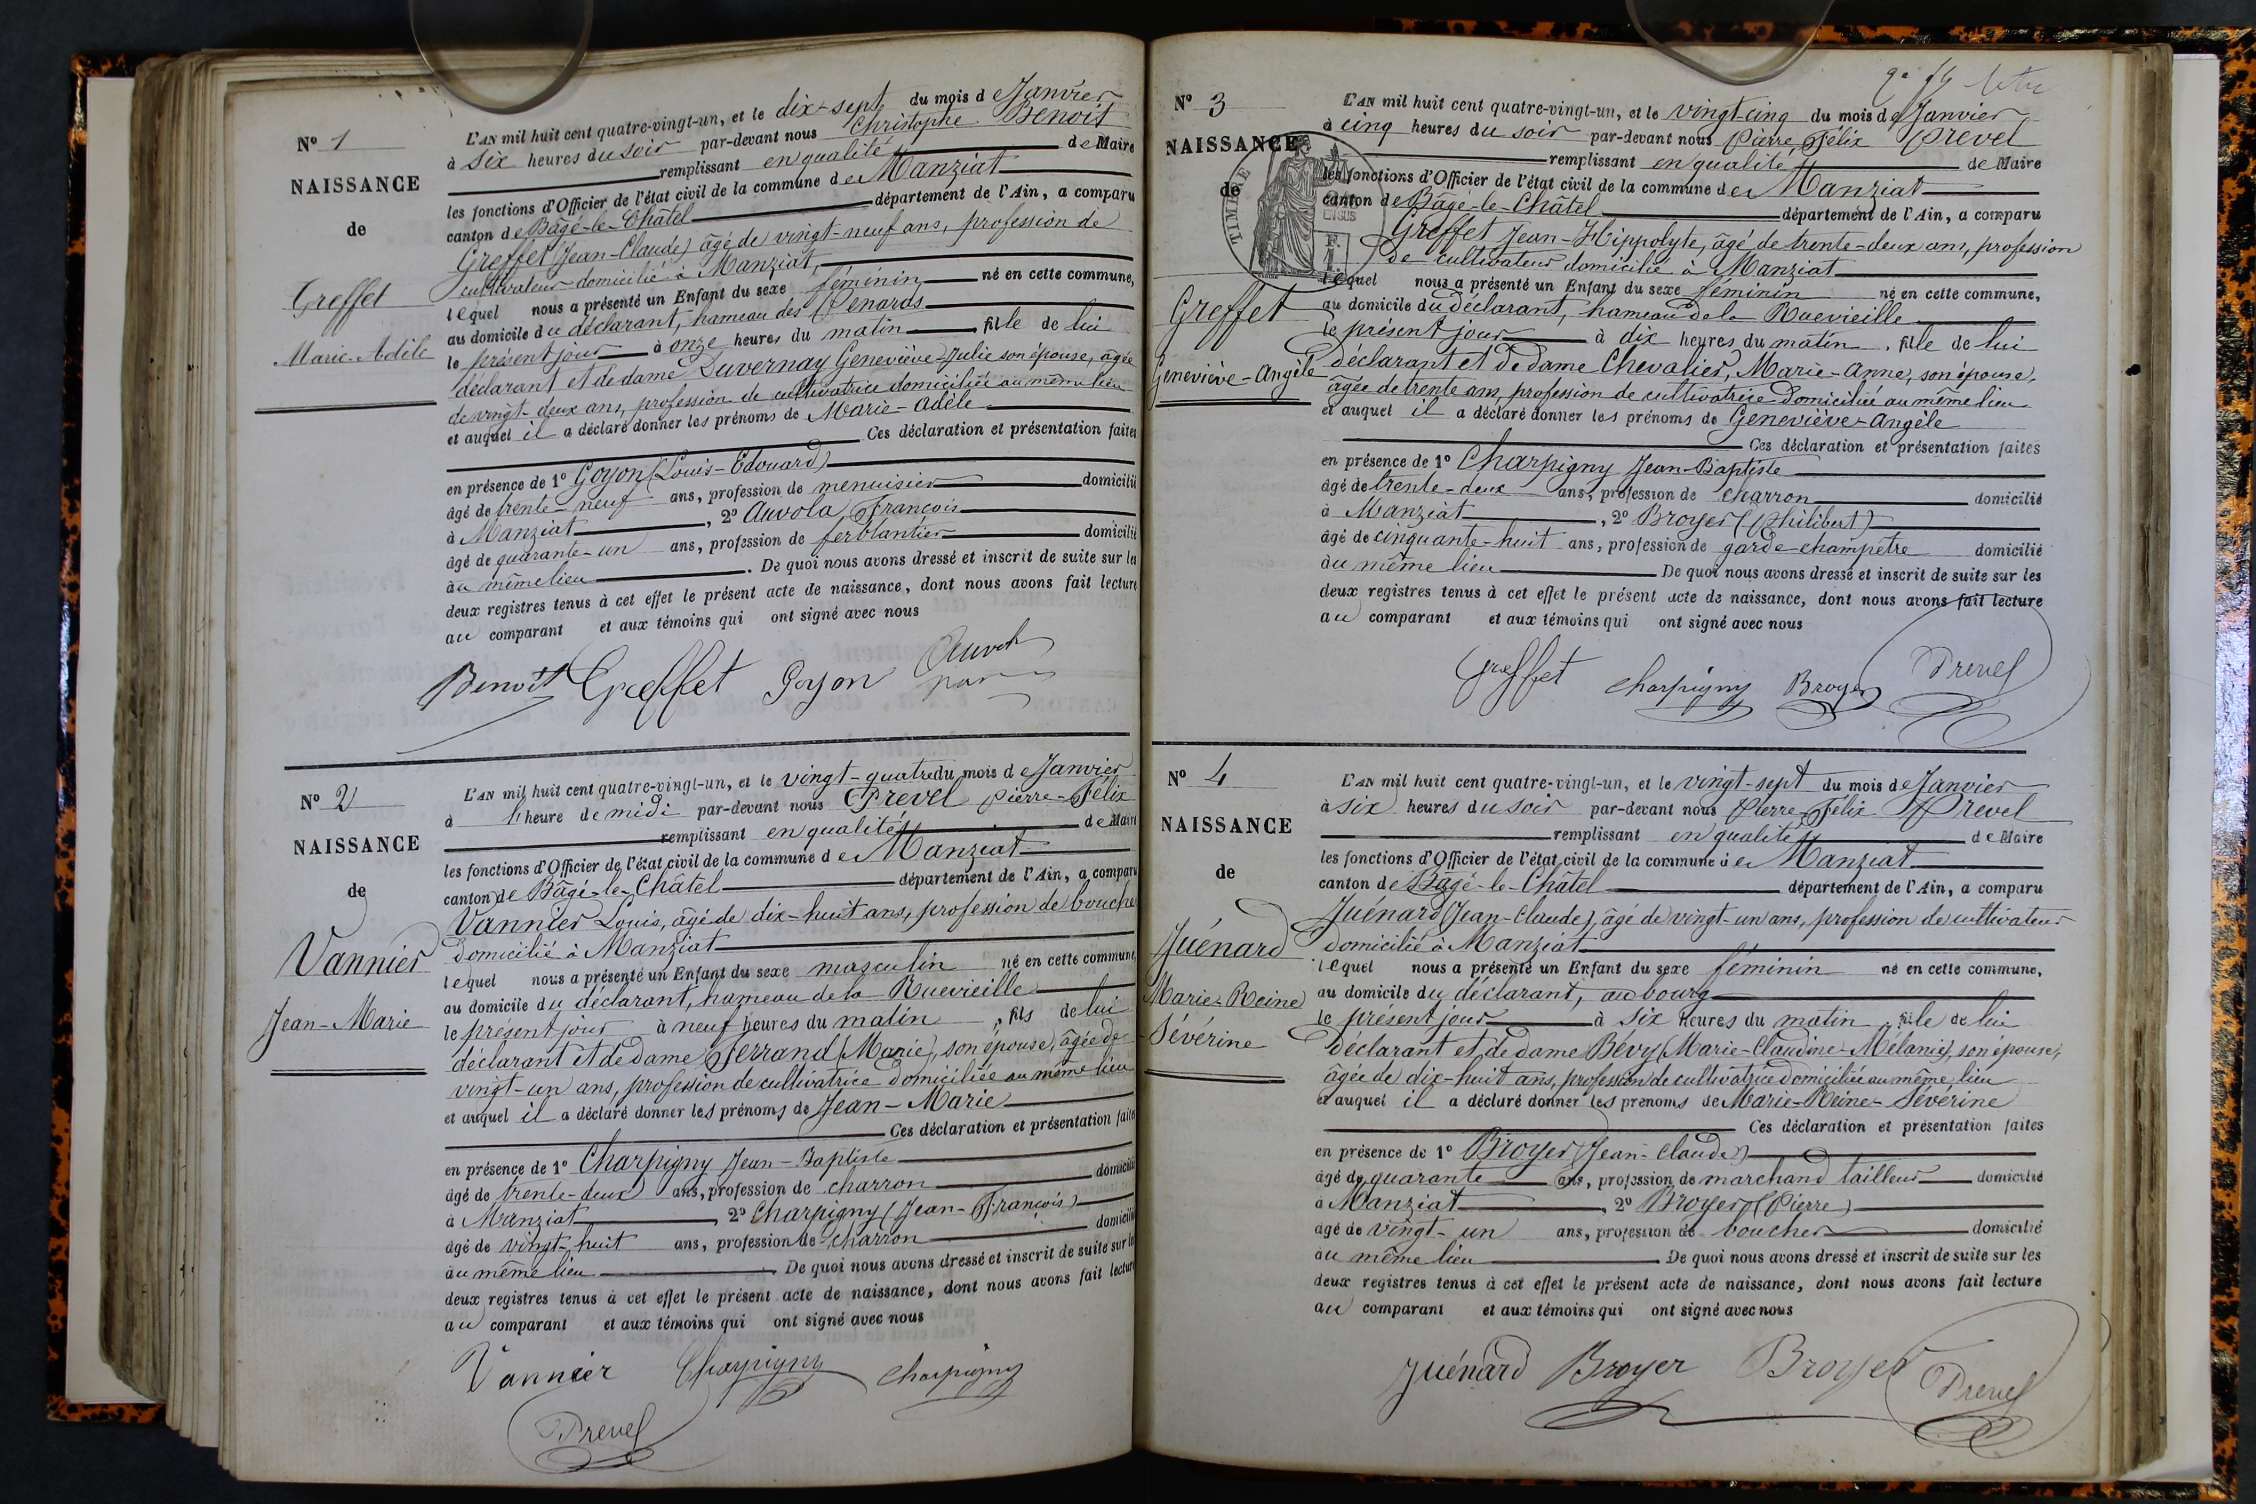 N° 1
NAISSANCE
de
Greffet
Marie-Adèle
L'AN mil huit cent quatre-vingt-un, et le dix-sept du mois de Janvier
à six heures du soir par-devant nous Christophe Benoit
remplissant en qualité de Maire
les fonctions d'Officier de l'état civil de la commune de Manziat
canton de Bâgé-le-Châtel département de l'Ain, a comparu
Greffet (Jean-Claude) âgé de vingt-neuf ans, profession de
cultivateur domicilié à Manziat,
lequel nous a présenté un Enfant du sexe féminin né en cette commune,
au domicile du déclarant, hameau des Penards
le présent jour à onze heures du matin fille de lui
déclarant et de dame Duvernay Geneviève-Julie son épouse, âgée
de vingt-deux ans, profession de cultivatrice domiciliée au même lieu
et auquel il a déclaré donner les prénoms de Marie-Adèle
Ces déclaration et présentation faites
en présence de 1° Goyon (Louis-Edouard)
âgé de trente-neuf ans, profession de menuisier domicilié
à Manziat, 2° Auvola François
âgé de quarante-un ans, profession de ferblantier domicilié
au même lieu. De quoi nous avons dressé et inscrit de suite sur les
deux registres tenus à cet effet le présent acte de naissance, dont nous avons fait lecture
au comparant et aux témoins qui ont signé avec nous
Benoit Greffet Goyon
N° 2
NAISSANCE
de
Vannier
Jean-Marie
L'AN mil huit cent quatre-vingt-un, et le vingt-quatre du mois de Janvier
à 1 heure de midi par-devant nous Prevel Pierre-Félix
remplissant en qualité de Maire
les fonctions d'Officier de l'état civil de la commune de Manziat
canton de Bâgé-le-Châtel département de l'Ain, a comparu
Vannier Louis, âgé de dix-huit ans, profession de boucher
domicilié à Manziat
lequel nous a présenté un Enfant du sexe masculin né en cette commune,
au domicile du déclarant, hameau de la Ruevieille
le présent jour à neuf heures du matin, fils de lui
déclarant et de dame Ferrand (Marie), son épouse, âgée de
vingt-un ans, profession de cultivatrice domiciliée au même lieu
et auquel il a déclaré donner les prénoms de Jean-Marie
Ces déclaration et présentation faites
en présence de 1° Charpigny Jean-Baptiste
âgé de trente-deux ans, profession de charron domicilié
à Manziat, 2° Charpigny (Jean-François)
âgé de vingt-huit ans, profession de charron domicilié
au même lieu. De quoi nous avons dressé et inscrit de suite sur les
deux registres tenus à cet effet le présent acte de naissance, dont nous avons fait lecture
au comparant et aux témoins qui ont signé avec nous
Vannier Charpigny Charpigny
Prevel
N° 3
NAISSANCE
de
TIMBRE
Greffet
Geneviève-Angèle
L'AN mil huit cent quatre-vingt-un, et le vingt-cinq du mois de Janvier
à cinq heures du soir par-devant nous Pierre, Félix Prevel
remplissant en qualité de Maire
les fonctions d'Officier de l'état civil de la commune de Manziat
canton de Bâgé-le-Châtel département de l'Ain, a comparu
Greffet Jean-Hippolyte, âgé de trente-deux ans, profession
de cultivateur domicilié à Manziat
lequel nous a présenté un Enfant du sexe féminin né en cette commune,
au domicile du déclarant, hameau de la Ruevieille
le présent jour à dix heures du matin, fille de lui
déclarant et de dame Chevalier, Marie-Anne, son épouse,
âgée de trente ans, profession de cultivatrice domiciliée au même lieu
et auquel il a déclaré donner les prénoms de Geneviève-Angèle
Ces déclaration et présentation faites
en présence de 1° Charpigny Jean-Baptiste
âgé de trente-deux ans, profession de charron domicilié
à Manziat, 2° Broyer (Philibert)
âgé de cinquante-huit ans, profession de garde-champêtre domicilié
au même lieu De quoi nous avons dressé et inscrit de suite sur les
deux registres tenus à cet effet le présent acte de naissance, dont nous avons fait lecture
au comparant et aux témoins qui ont signé avec nous
Greffet Charpigny Broyer Prevel
N° 4
NAISSANCE
de
Juénard
Marie-Reine
Sévérine
L'AN mil huit cent quatre-vingt-un, et le vingt-sept du mois de Janvier
à six heures du soir par-devant nous Pierre-Félix Prevel
remplissant en qualité de Maire
les fonctions d'Officier de l'état civil de la commune de Manziat
canton de Bâgé-le-Châtel département de l'Ain, a comparu
Juénard (Jean-Claude), âgé de vingt-un ans, profession de cultivateur
domicilié à Manziat
lequel nous a présenté un Enfant du sexe féminin né en cette commune,
au domicile du déclarant, au bourg
le présent jour à six heures du matin, fille de lui
déclarant et de dame Bévy (Marie-Claudine-Mélanie), son épouse,
âgée de dix-huit ans, profession de cultivatrice domiciliée au même lieu
et auquel il a déclaré donner les prénoms de Marie-Reine-Sévérine
Ces déclaration et présentation faites
en présence de 1° Broyer (Jean-Claude)
âgé de quarante ans, profession de marchand tailleur domicilié
à Manziat, 2° Broyer (Pierre)
âgé de vingt-un ans, profession de boucher domicilié
au même lieu De quoi nous avons dressé et inscrit de suite sur les
deux registres tenus à cet effet le présent acte de naissance, dont nous avons fait lecture
au comparant et aux témoins qui ont signé avec nous
Juénard Broyer Broyer Prevel